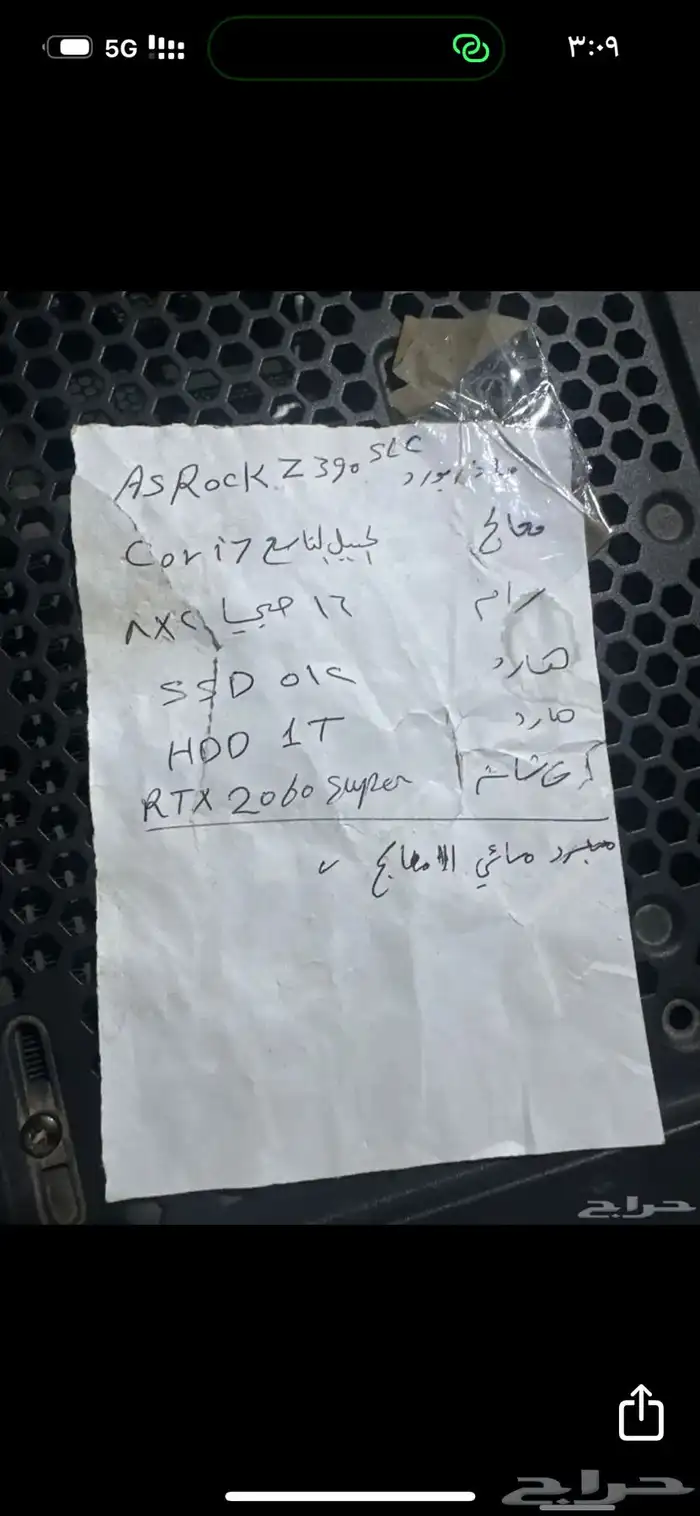 5G ٣:٠٩
مذربورد AsRock Z390 SLC
معالج Cor i7 الجيل التاسع
رام ١٦ جيجا ٨X٢
هارد SSD ٥١٢
هارد HDD 1T
كرت شاشة RTX 2060 super
مبرد مائي للمعالج
حراج
حراج